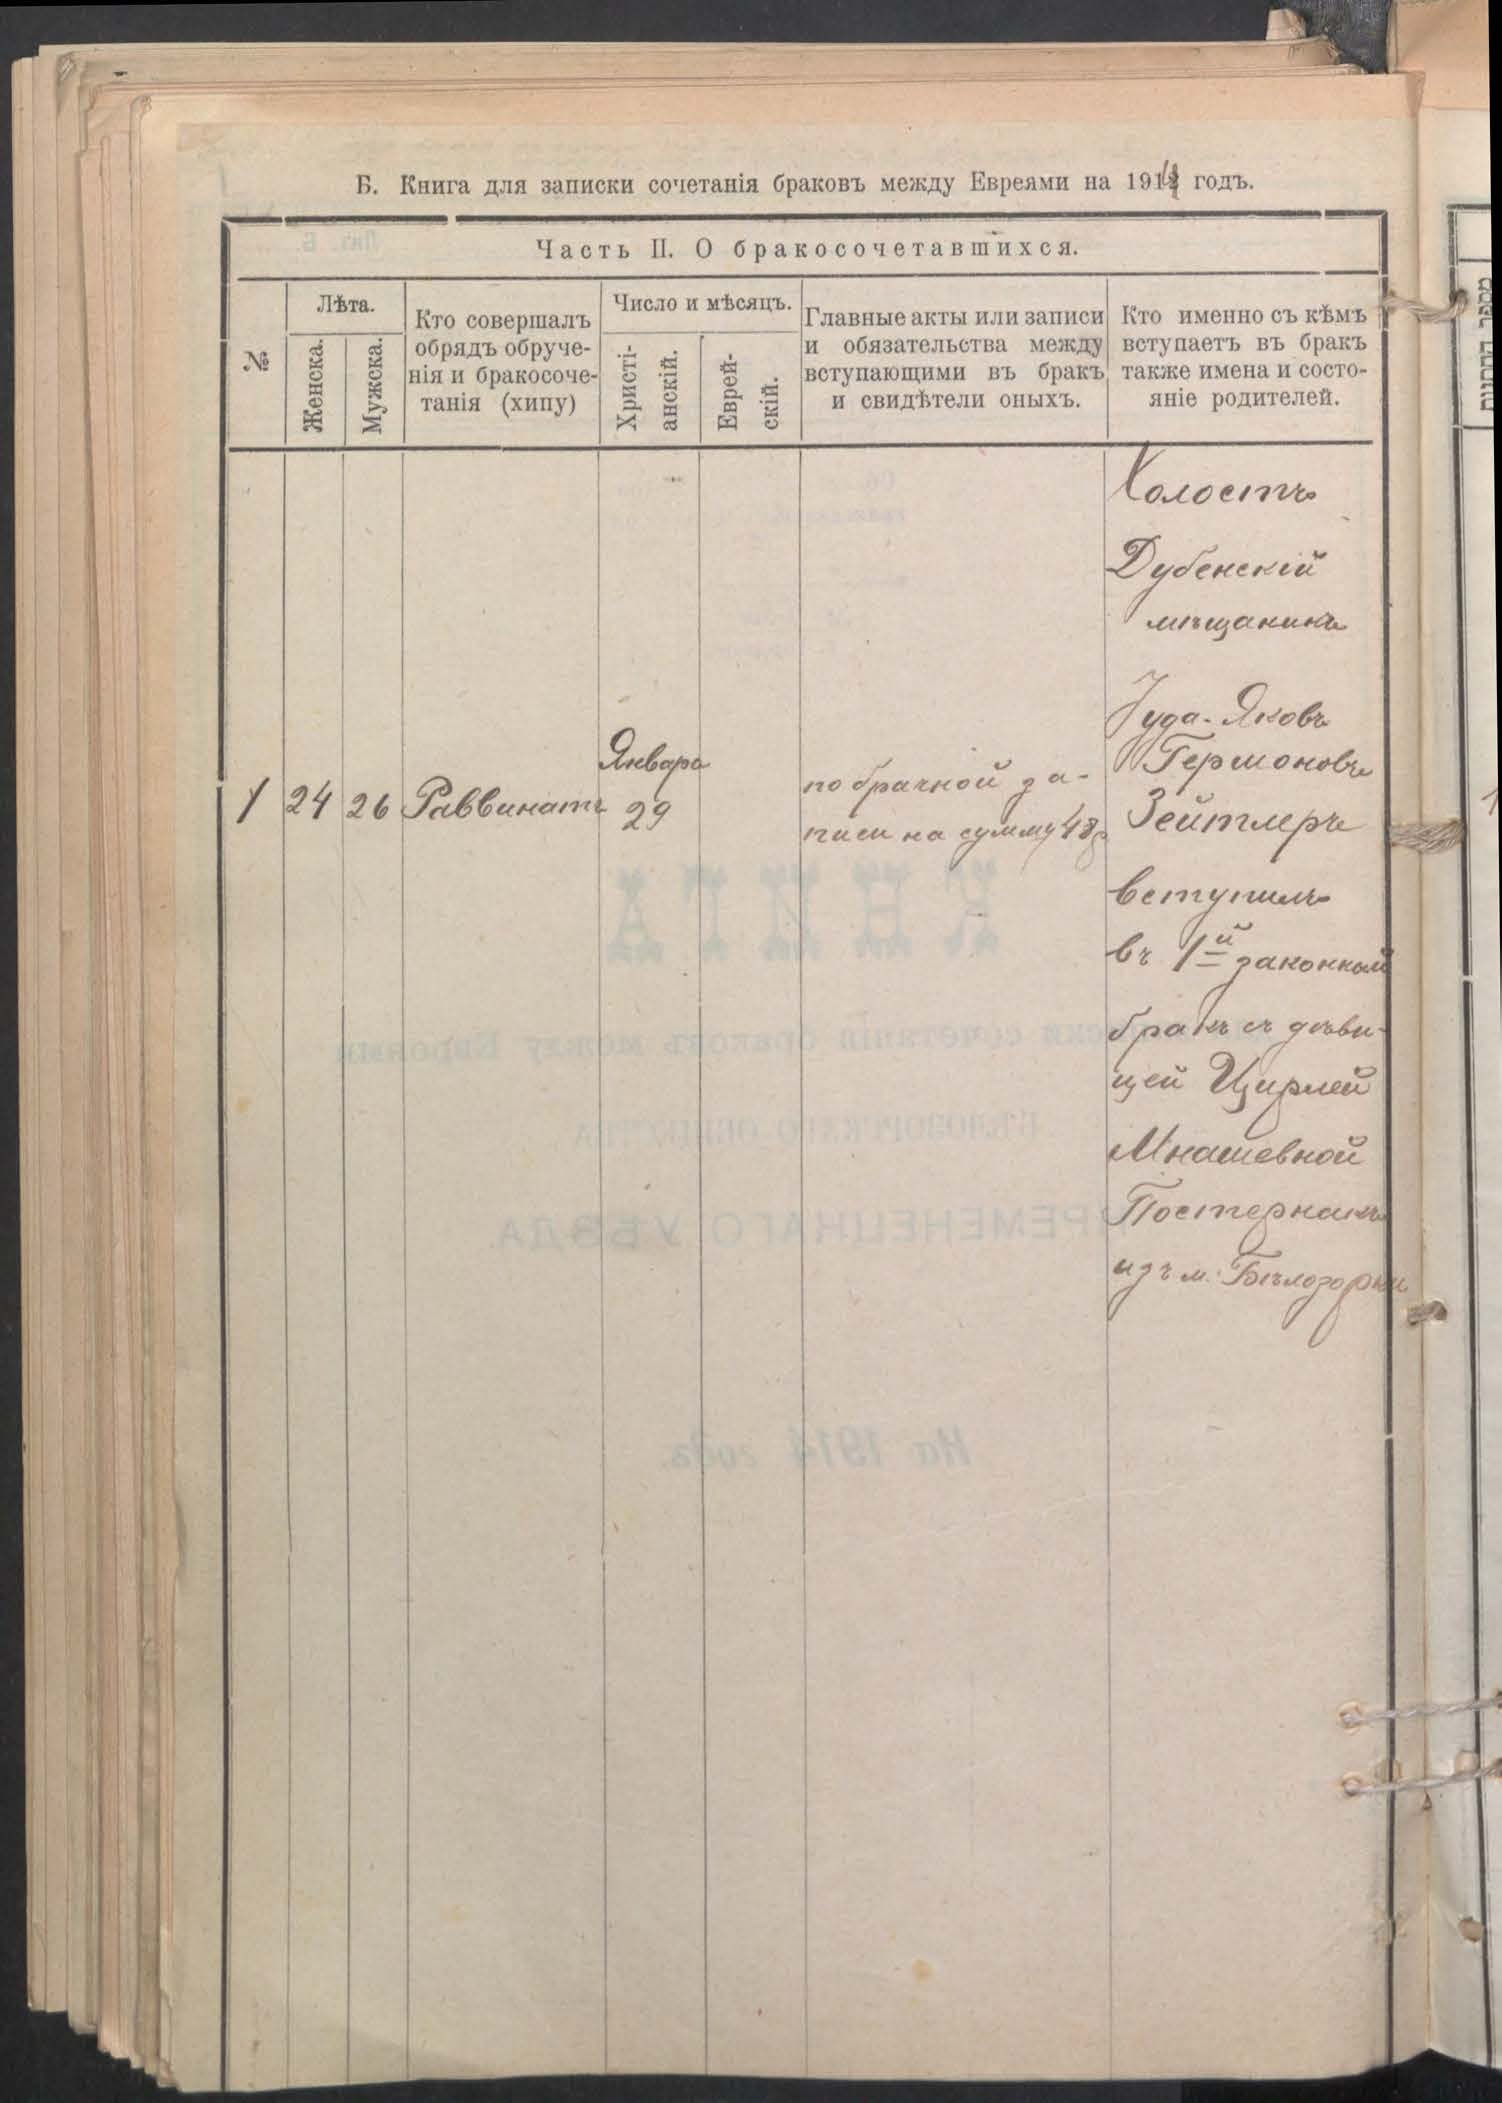 Б. Книга для записки сочетанія браковъ между Евреями на 1914 годъ.
Часть II. О бракосочетавшихся.
№
Лѣта.
Женска.
Мужска.
Кто совершалъ
обрядъ обруче-
нія и бракосоче-
танія (хипу)
Число и мѣсяцъ.
Христі-
анскій.
Еврей-
скій.
Главные акты или записи
и обязательства между
вступающими въ бракъ
и свидѣтели оныхъ.
Кто именно съ кѣмъ
вступаетъ въ бракъ
также имена и состо-
яніе родителей.
1
24
26
Раввинатъ
Января
29
по брачной за-
писи на сумму 48р
Холостъ
Дубенскій
мѣщанинъ
Іуда-Яковъ
Гермоновъ
Зейтлеръ
вступилъ
въ 1й законный
бракъ съ дѣви-
цей Цирлей
Мнашевной
Постернакъ
изъ м. Бѣлозорки
КНИГА
сочетанія браковъ между Евреями
БѢЛОЗОРСКАГО ОБЩЕСТВА
КРЕМЕНЕЦКАГО УѢЗДА.
На 1914 годъ.